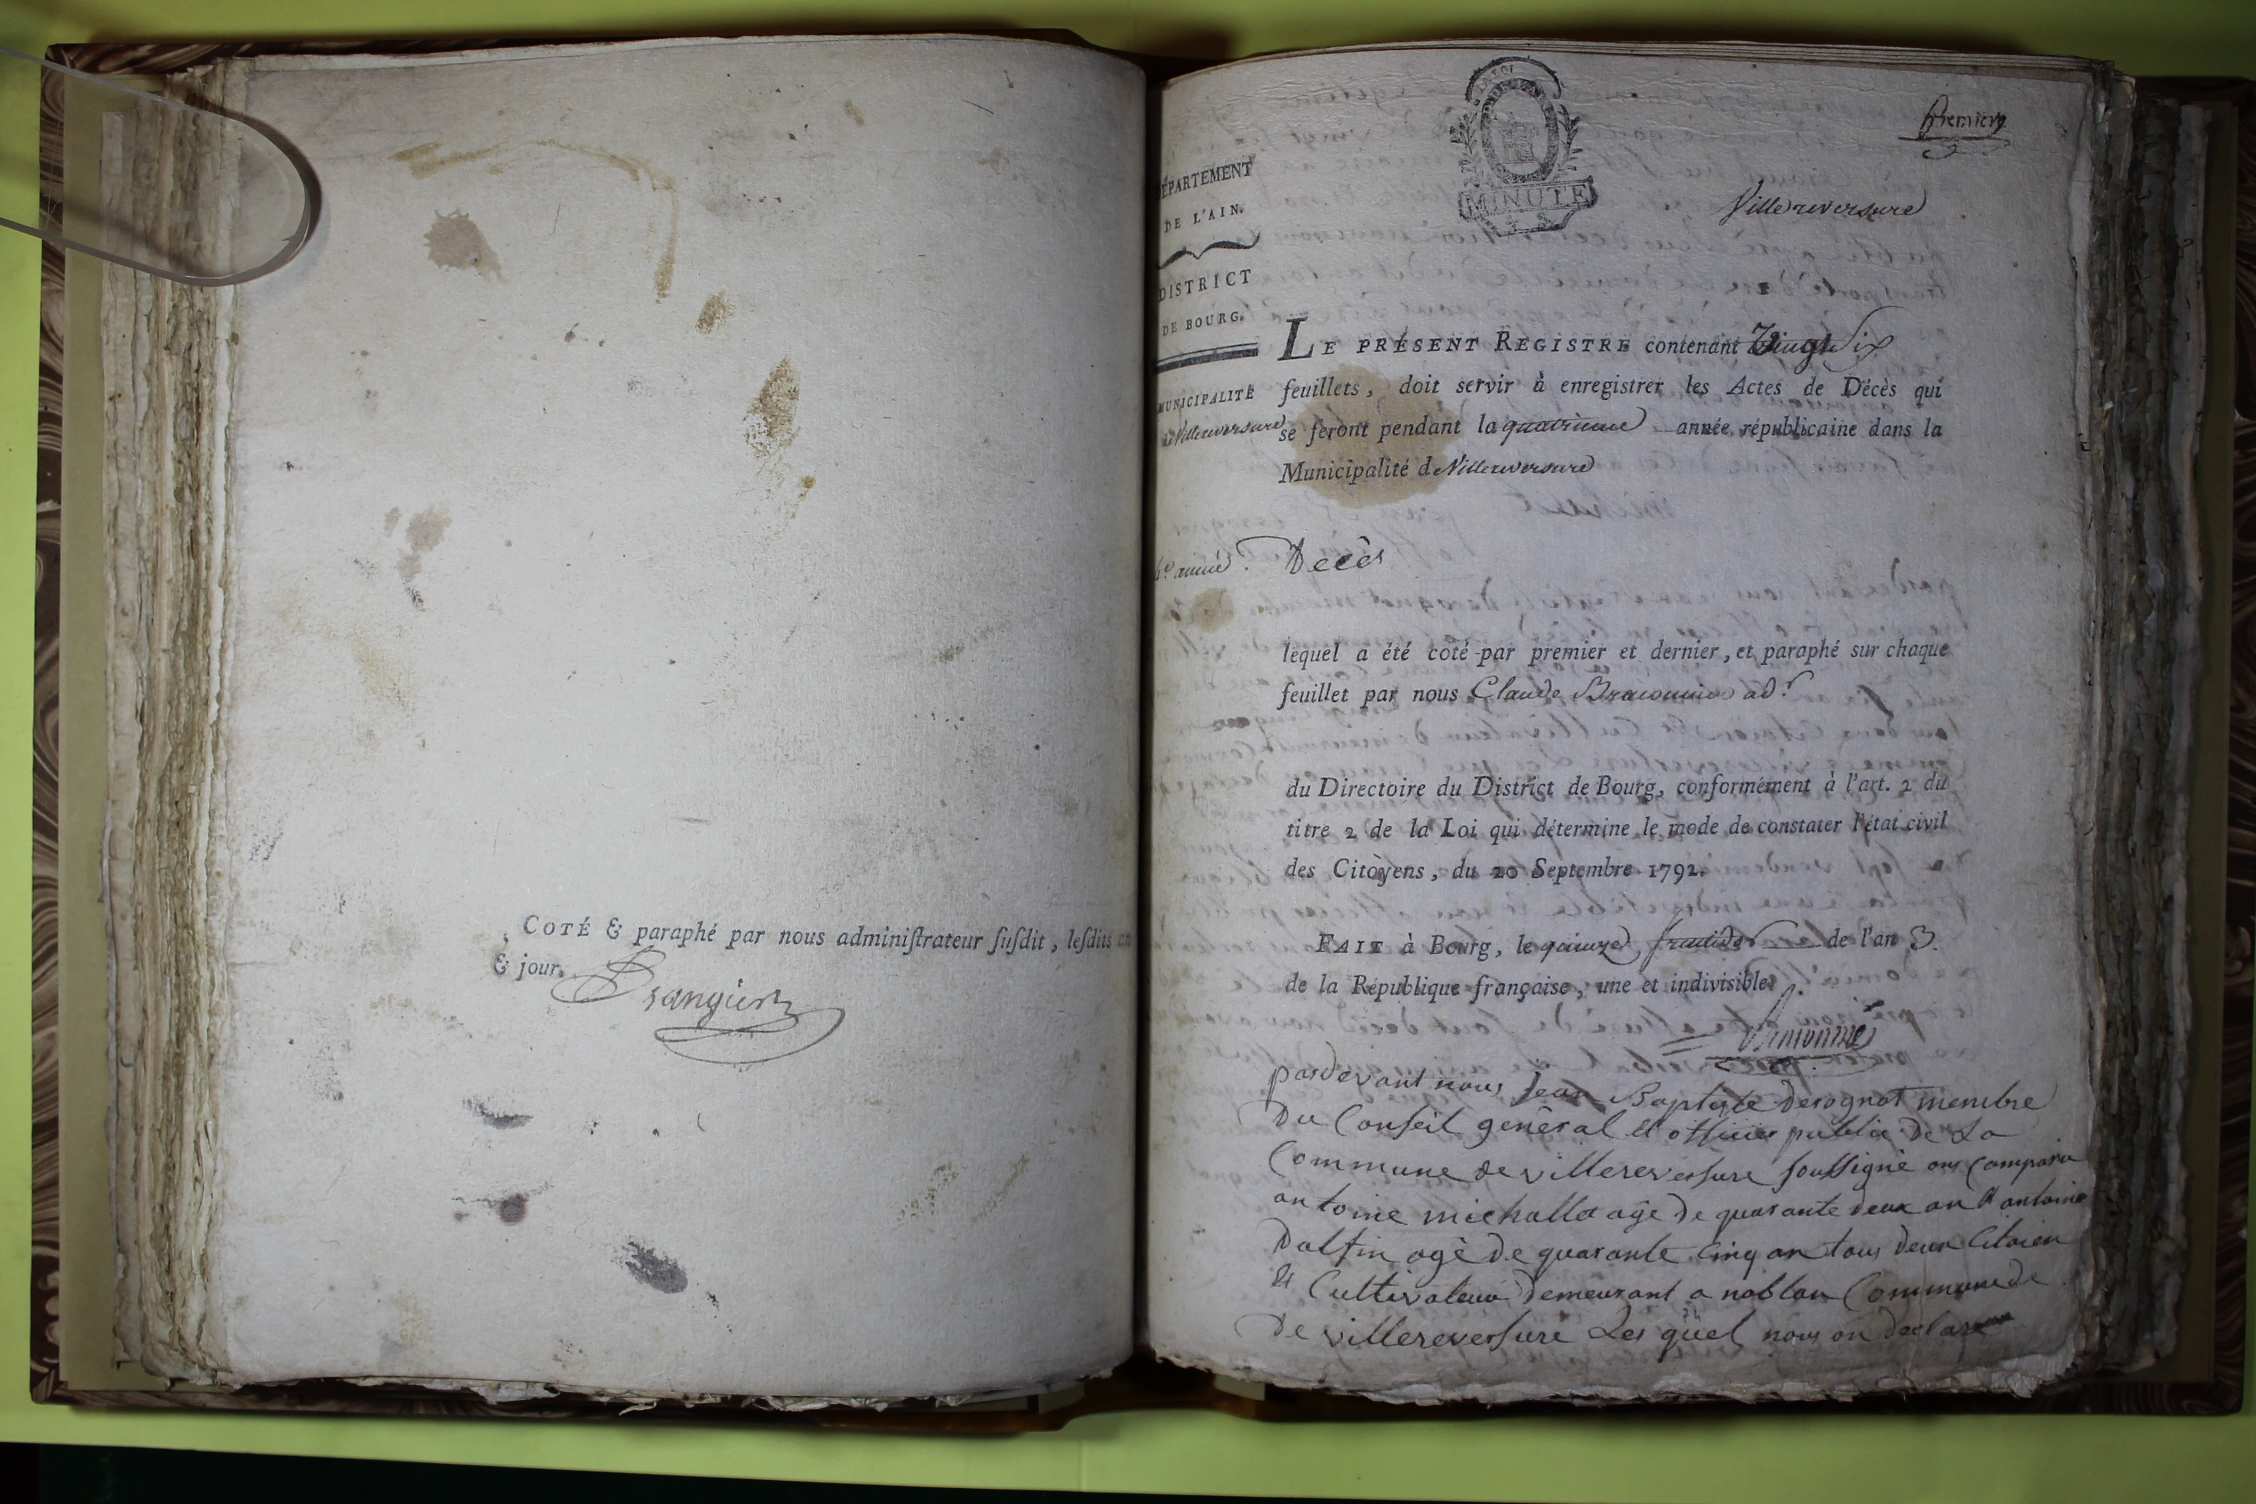 COTÉ & paraphé par nous adminiſtrateur ſuſdit, leſdits an
& jour.
Brangier
LA LOI
MINUTE
Premier
Villereversure
DÉPARTEMENT
DE L'AIN.
DISTRICT
DE BOURG.
MUNICIPALITÉ
de Villereversure
4e année.
LE PRÉSENT REGISTRE contenant Vingt Six
feuillets, doit servir à enregistrer les Actes de Décès qui
se feront pendant la quatrieme année républicaine dans la
Municipalité de Villereversure
Decès
lequel a été coté par premier et dernier, et paraphé sur chaque
feuillet par nous Claude ad.r
du Directoire du District de Bourg, conformément à l'art. 2 du
titre 2 de la Loi qui détermine le mode de constater l'état civil
des Citòyens, du 20 Septembre 1792.
FAIT à Bourg, le quinze fructidor de l'an 3.
de la République française, une et indivisible.
pardevant nous Jean Baptiste derognat membre
Du Conseil genéral et officier public de La
Commune de villereversure soussigné ons comparu
antoine michallet agé de quarante deux an et antoine
Dalfin agé de quarante Cinq an tous deux Citoien
et Cultivateur demeurant a noblan Commune de
De villereversure Les quel nous on declaré